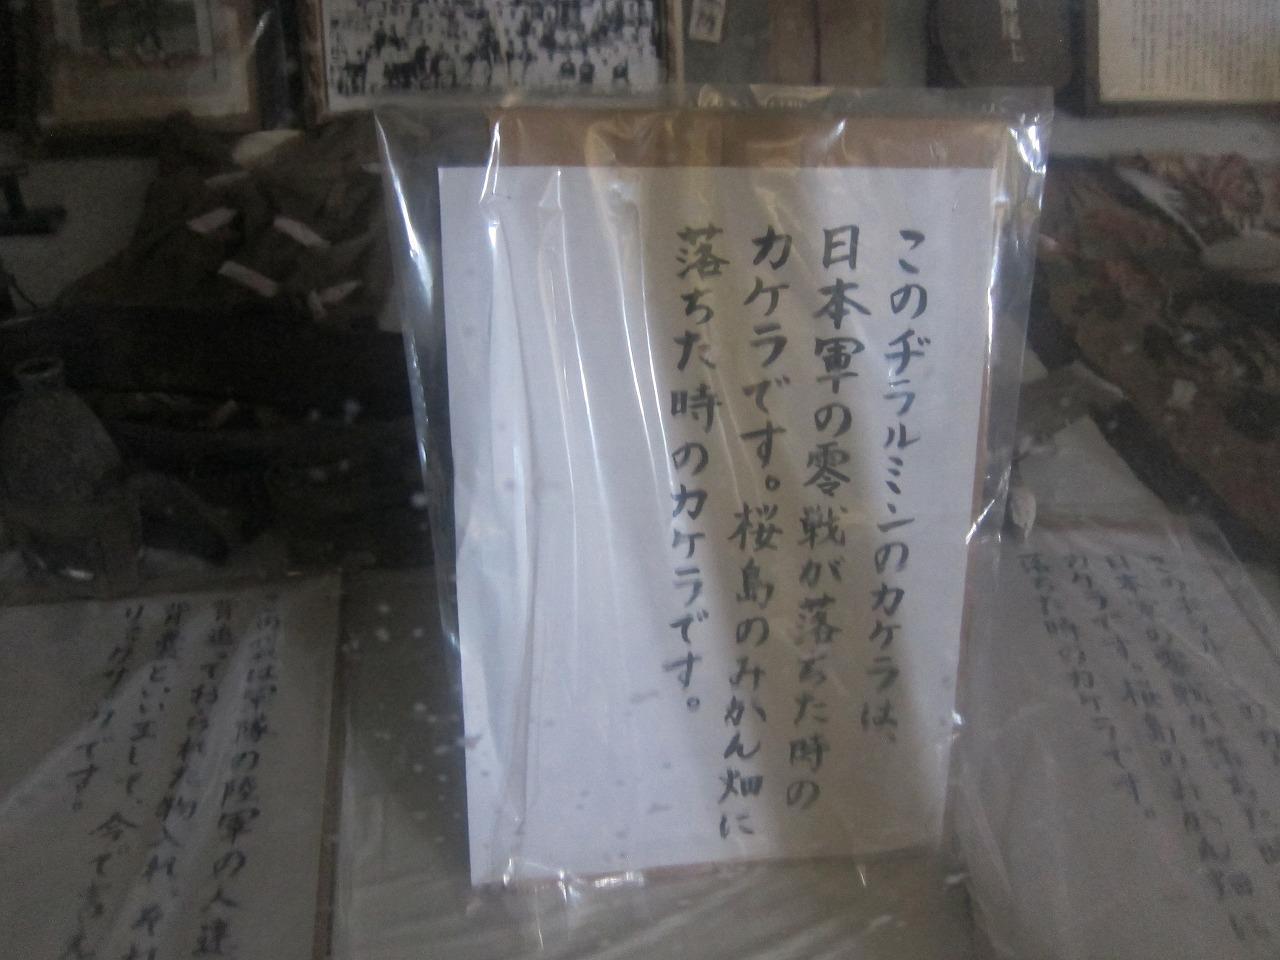 このヂラルミンのカケラは、
日本軍の零戦が落ちた時の
カケラです。桜島のみかん畑に
落ちた時のカケラです。
日本軍の零戦が落ちた時
カケラです。桜島のみかん畑に
落ちた時のカケラです。
は軍隊の陸軍の人達
背追っておられた物入れ、それ
背裏といゝまして、今で言え
リュクサリです。